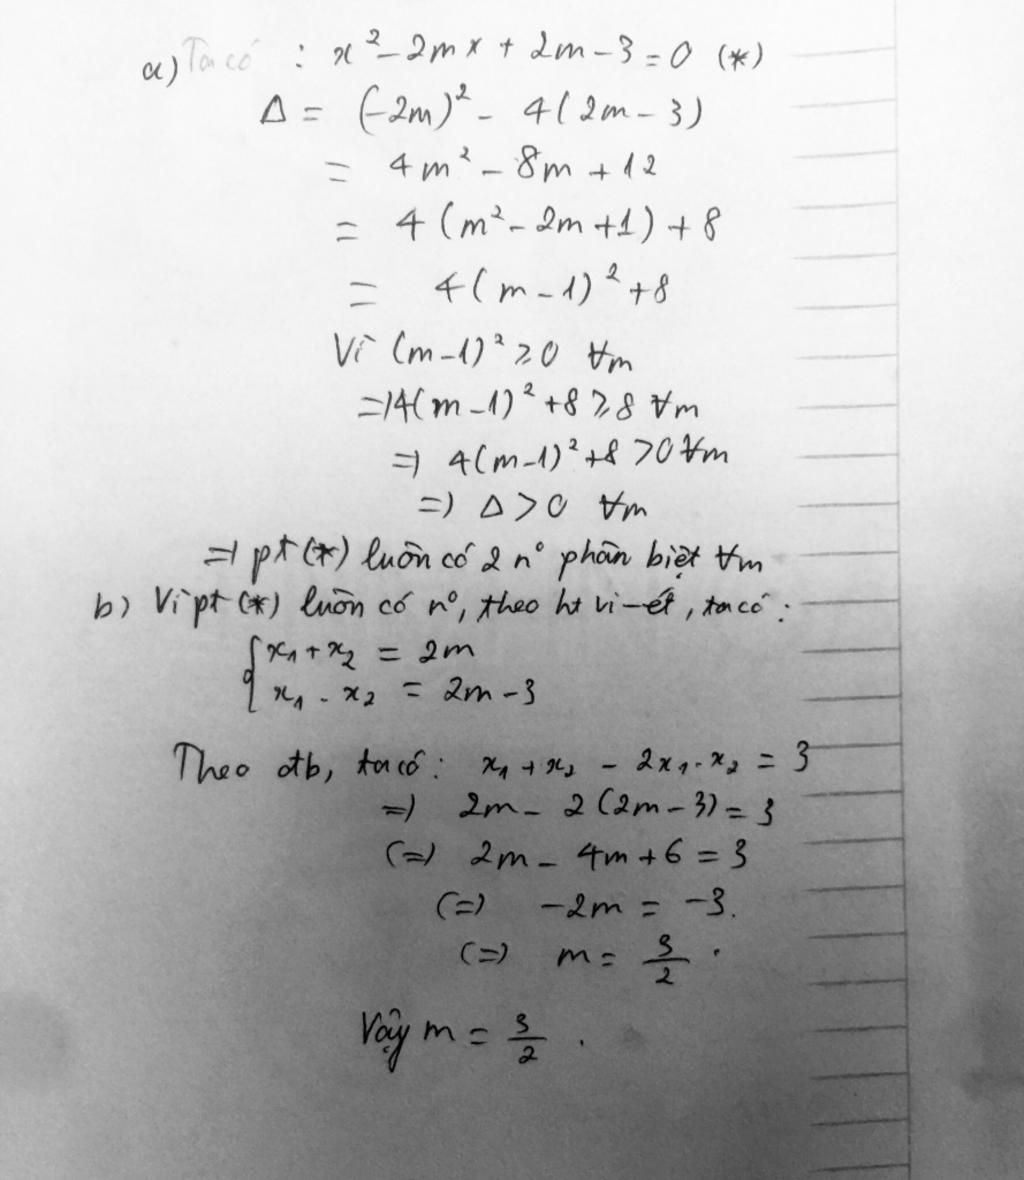 a) Ta có : x² - 2mx + 2m - 3 = 0 (*)
Δ = (-2m)² - 4(2m - 3)
= 4m² - 8m + 12
= 4(m² - 2m + 1) + 8
= 4(m - 1)² + 8
Vì (m - 1)² ≥ 0 ∀m
=> 4(m - 1)² + 8 ≥ 8 ∀m
=> 4(m - 1)² + 8 > 0 ∀m
=> Δ > 0 ∀m
=> pt (*) luôn có 2 n° phân biệt ∀m
b) Vì pt (*) luôn có n°, theo ht vi-ét, ta có :
{ x₁ + x₂ = 2m
x₁ . x₂ = 2m - 3
Theo đtb, ta có : x₁ + x₂ - 2x₁.x₂ = 3
=> 2m - 2(2m - 3) = 3
(=) 2m - 4m + 6 = 3
(=) -2m = -3.
(=) m = 3/2 .
Vậy m = 3/2 .